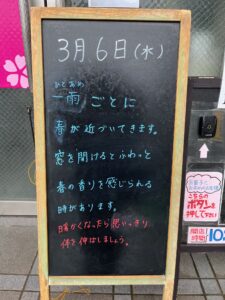 3月6日(水)
ひとあめ
一雨ごとに
春が近づいてきます。
窓を開けるとふわっと
春の香りを感じられる
時があります。
暖かくなったら思いっきり
体を伸ばしましょう。
こちらの
ボタンを
押して下さい
開店
時間
10